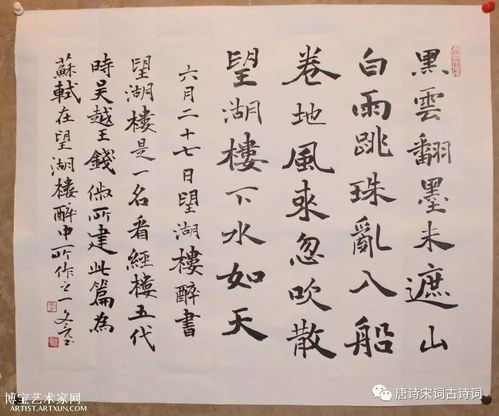 黑雲翻墨未遮山
白雨跳珠亂入船
卷地風來忽吹散
望湖樓下水如天
六月二十七日望湖樓醉書
望湖樓是一名看經樓五代
時吳越王錢俶所建此篇為
蘇軾在望湖樓醉中所作之一
博宝艺术家网
ARTIST.ARTXUN.COM
唐诗宋词古诗词